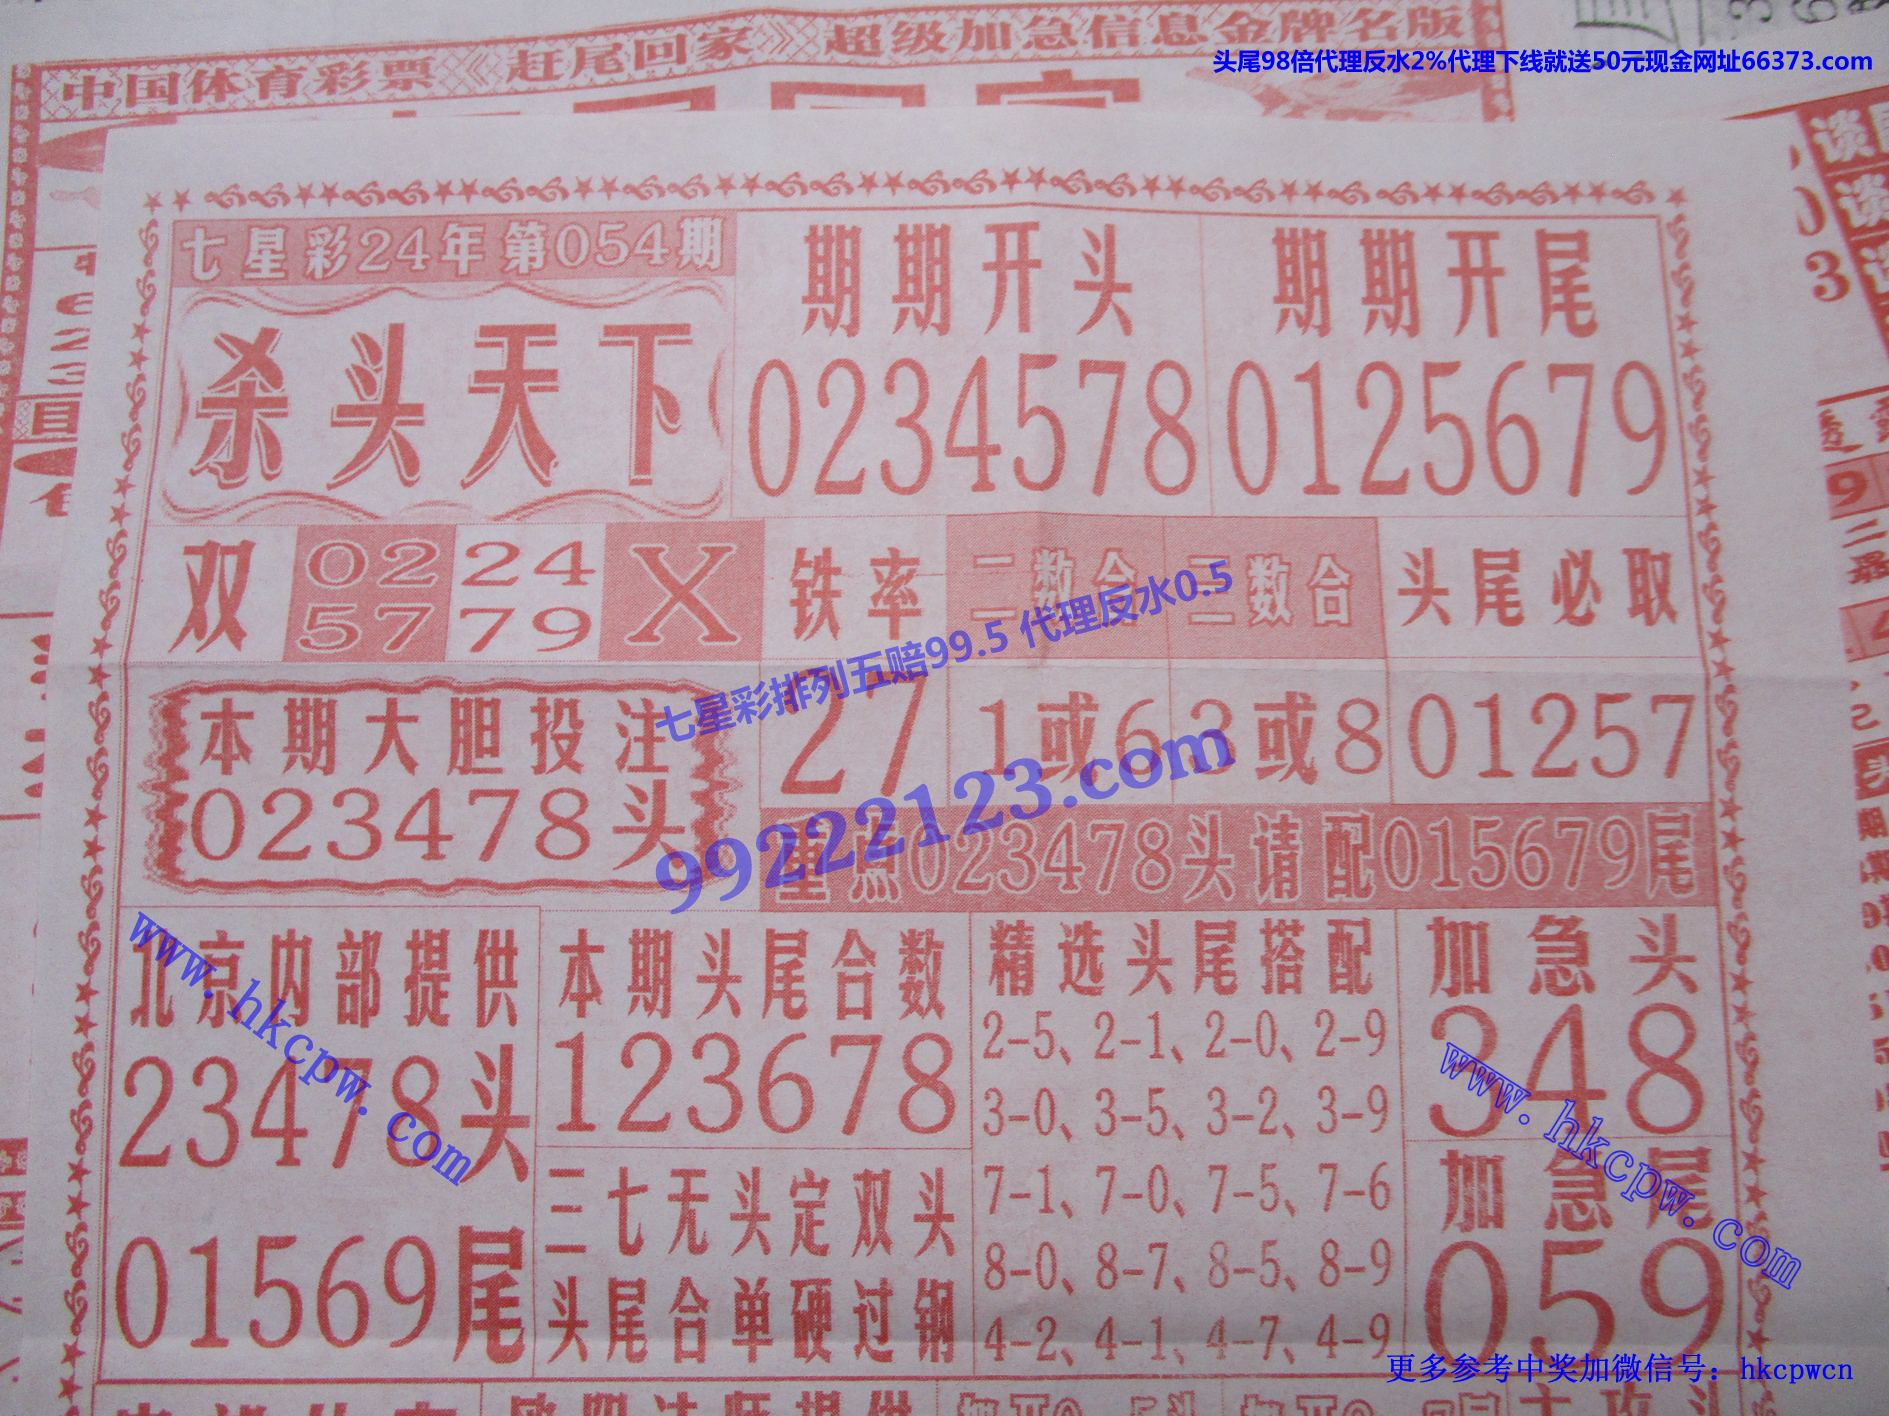 头尾98倍代理反水2%代理下线就送50元现金网址66373.com
中国体育彩票《赶尾回家》超级加急信息金牌名版
七星彩24年第054期
杀头天下
期期开头
0234578
期期开尾
0125679
双
02 24
57 79
X
铁率
27
二数合
1或6
三数合
3或8
头尾必取
01257
本期大胆投注
023478头
重点023478头请配015679尾
七星彩排列五赔99.5 代理反水0.5
99222123.com
北京内部提供
23478头
01569尾
www.hkcpw.com
本期头尾合数
123678
三七无头定双头
头尾合单硬过钢
精选头尾搭配
2-5、2-1、2-0、2-9
3-0、3-5、3-2、3-9
7-1、7-0、7-5、7-6
8-0、8-7、8-5、8-9
4-2、4-1、4-7、4-9
加急头
348
加急尾
059
www.hkcpw.com
更多参考中奖加微信号：hkcpwcn